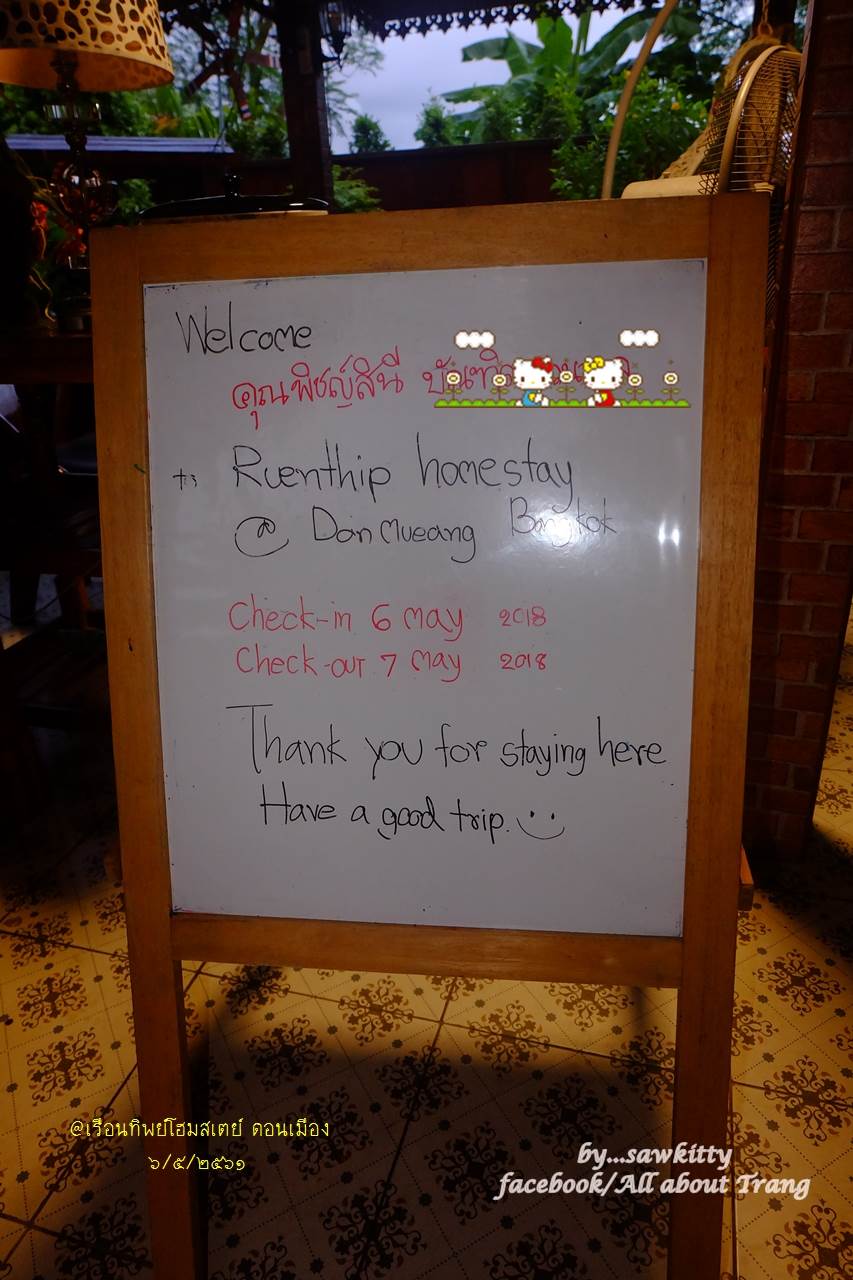 Welcome
คุณพิชญ์สินี
to Ruenthip homestay
@ Don Mueang Bangkok
Check-in 6 May 2018
Check-out 7 May 2018
Thank you for staying here
Have a good trip.
@เรือนทิพย์โฮมสเตย์ ดอนเมือง
๖/๕/๒๕๖๑
by...sawkitty
facebook/All about Trang